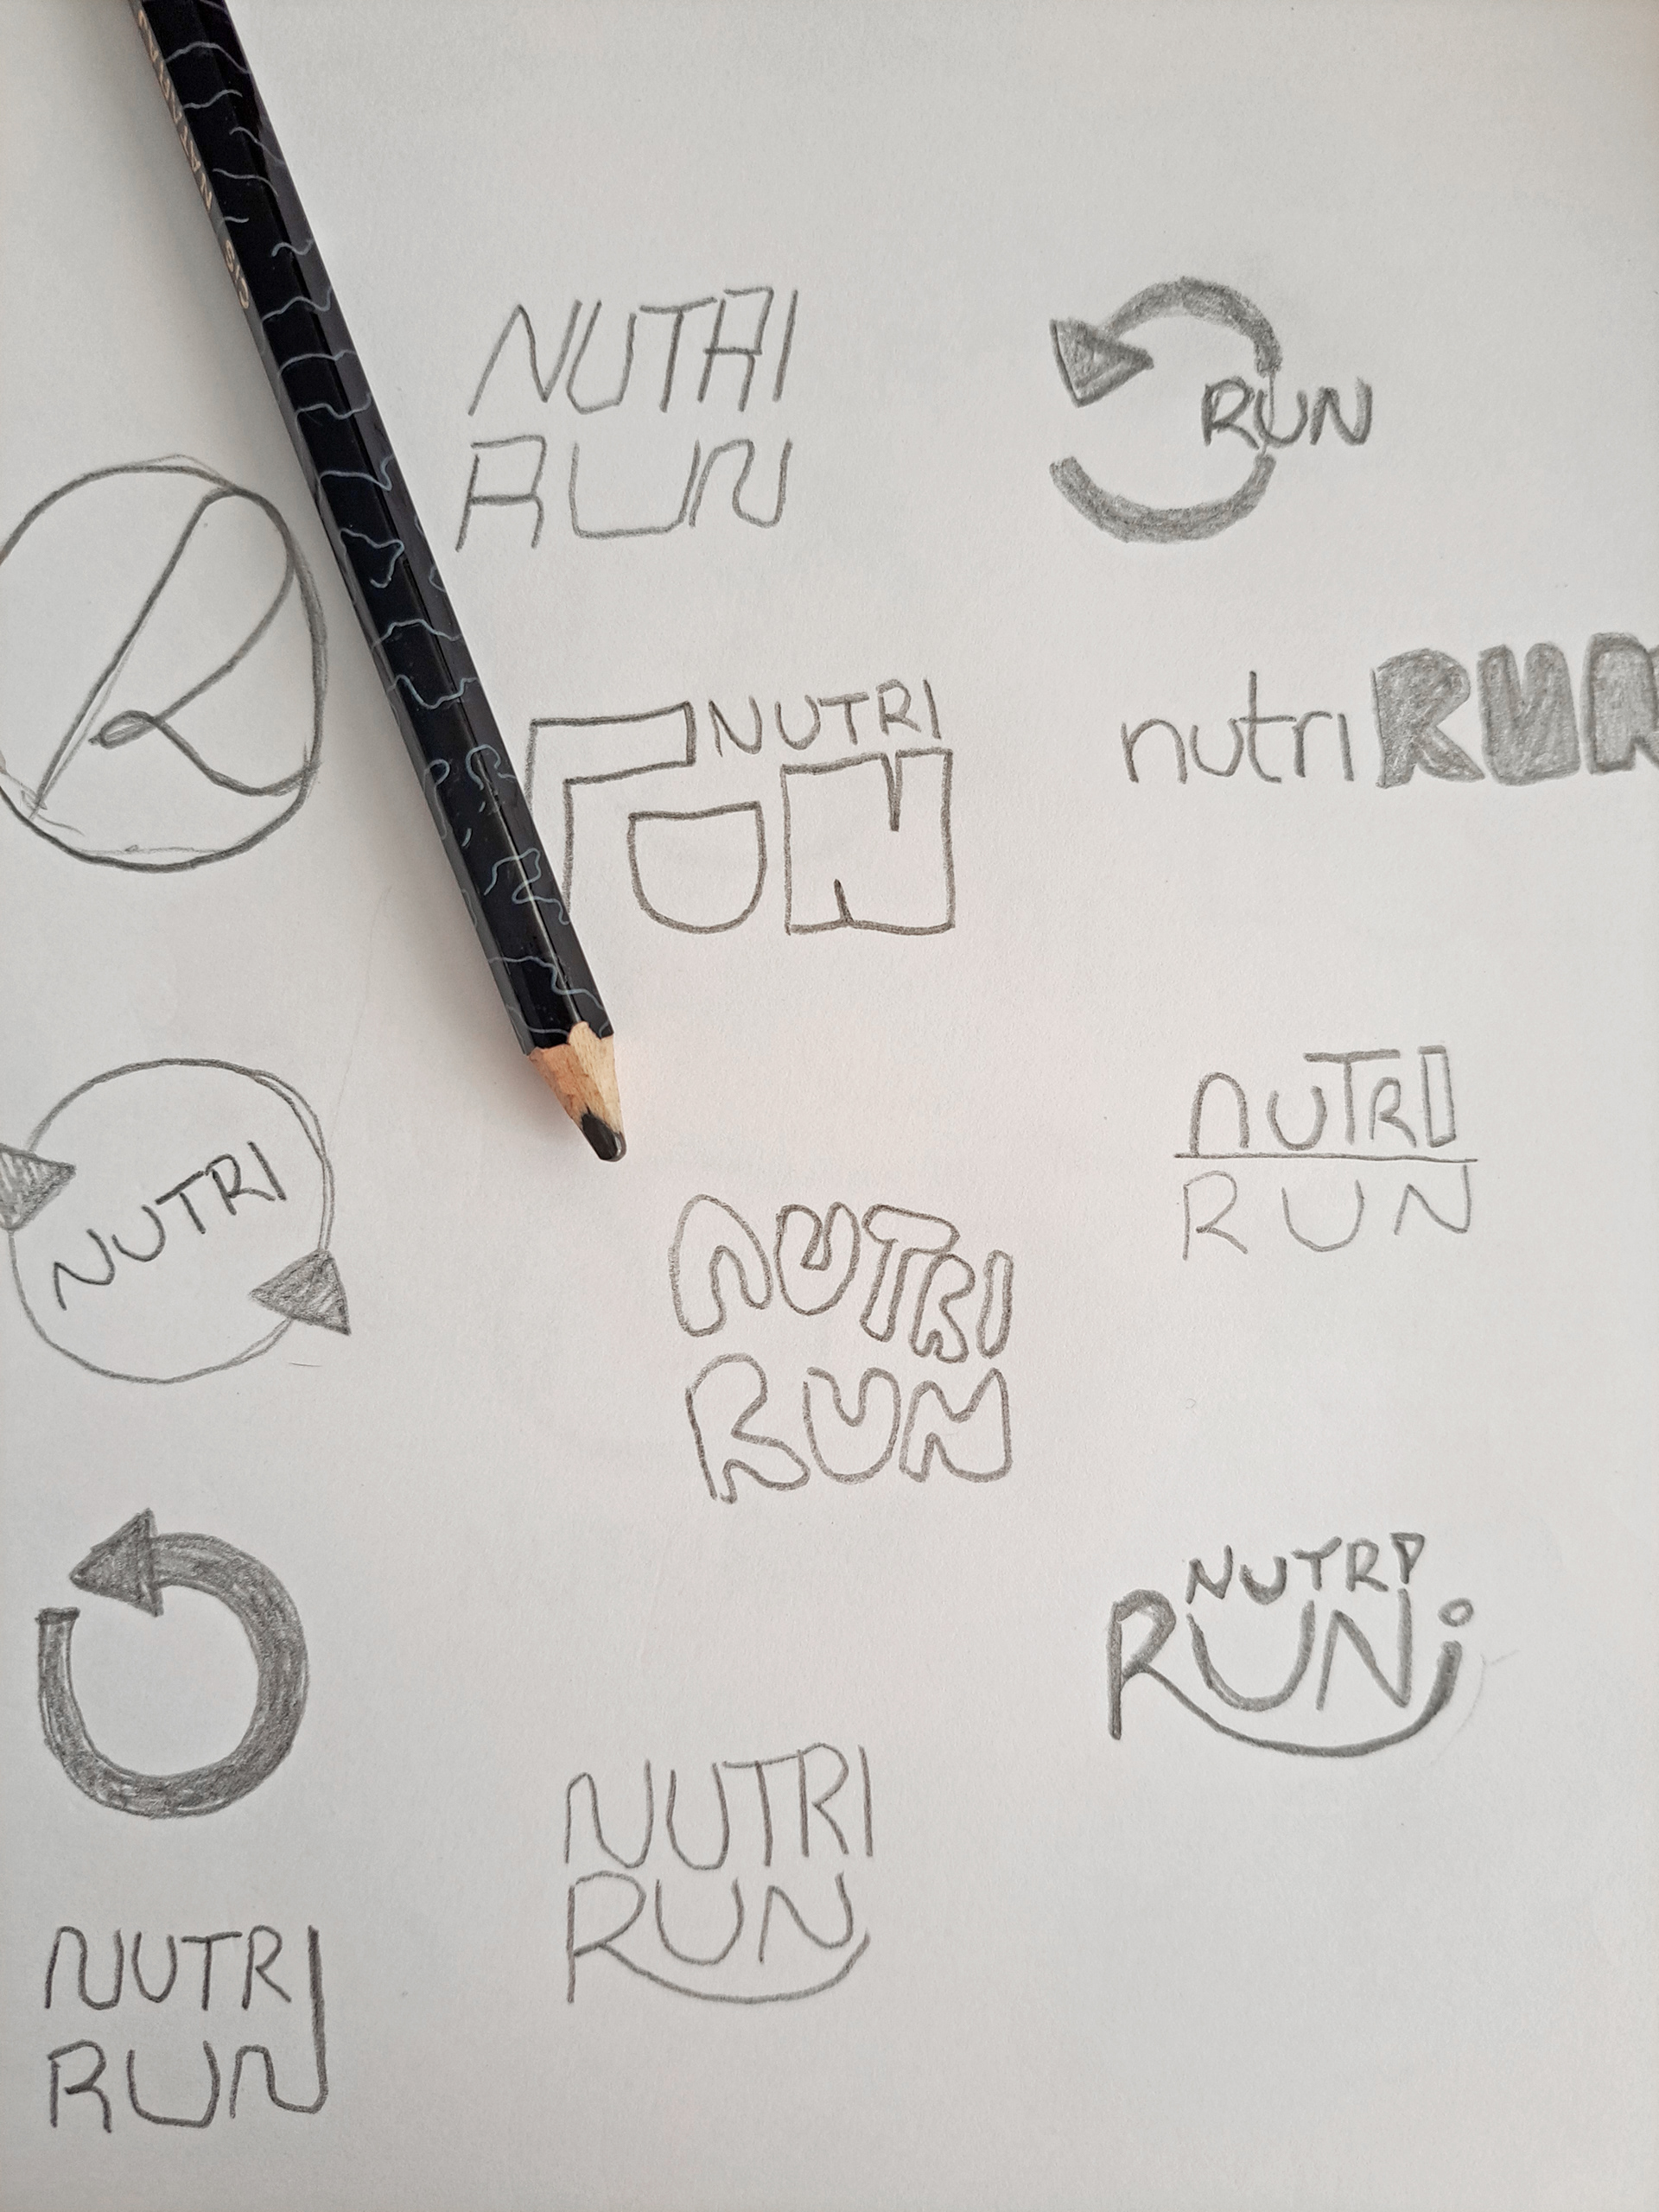 NUTRI
RUN
RUN
R
NUTRI
RUN
nutri RUN
NUTRI
nUTRI
RUN
NUTRI
RUN
NUTRI
RUN
NUTRI
RUN
NUTRI
RUN